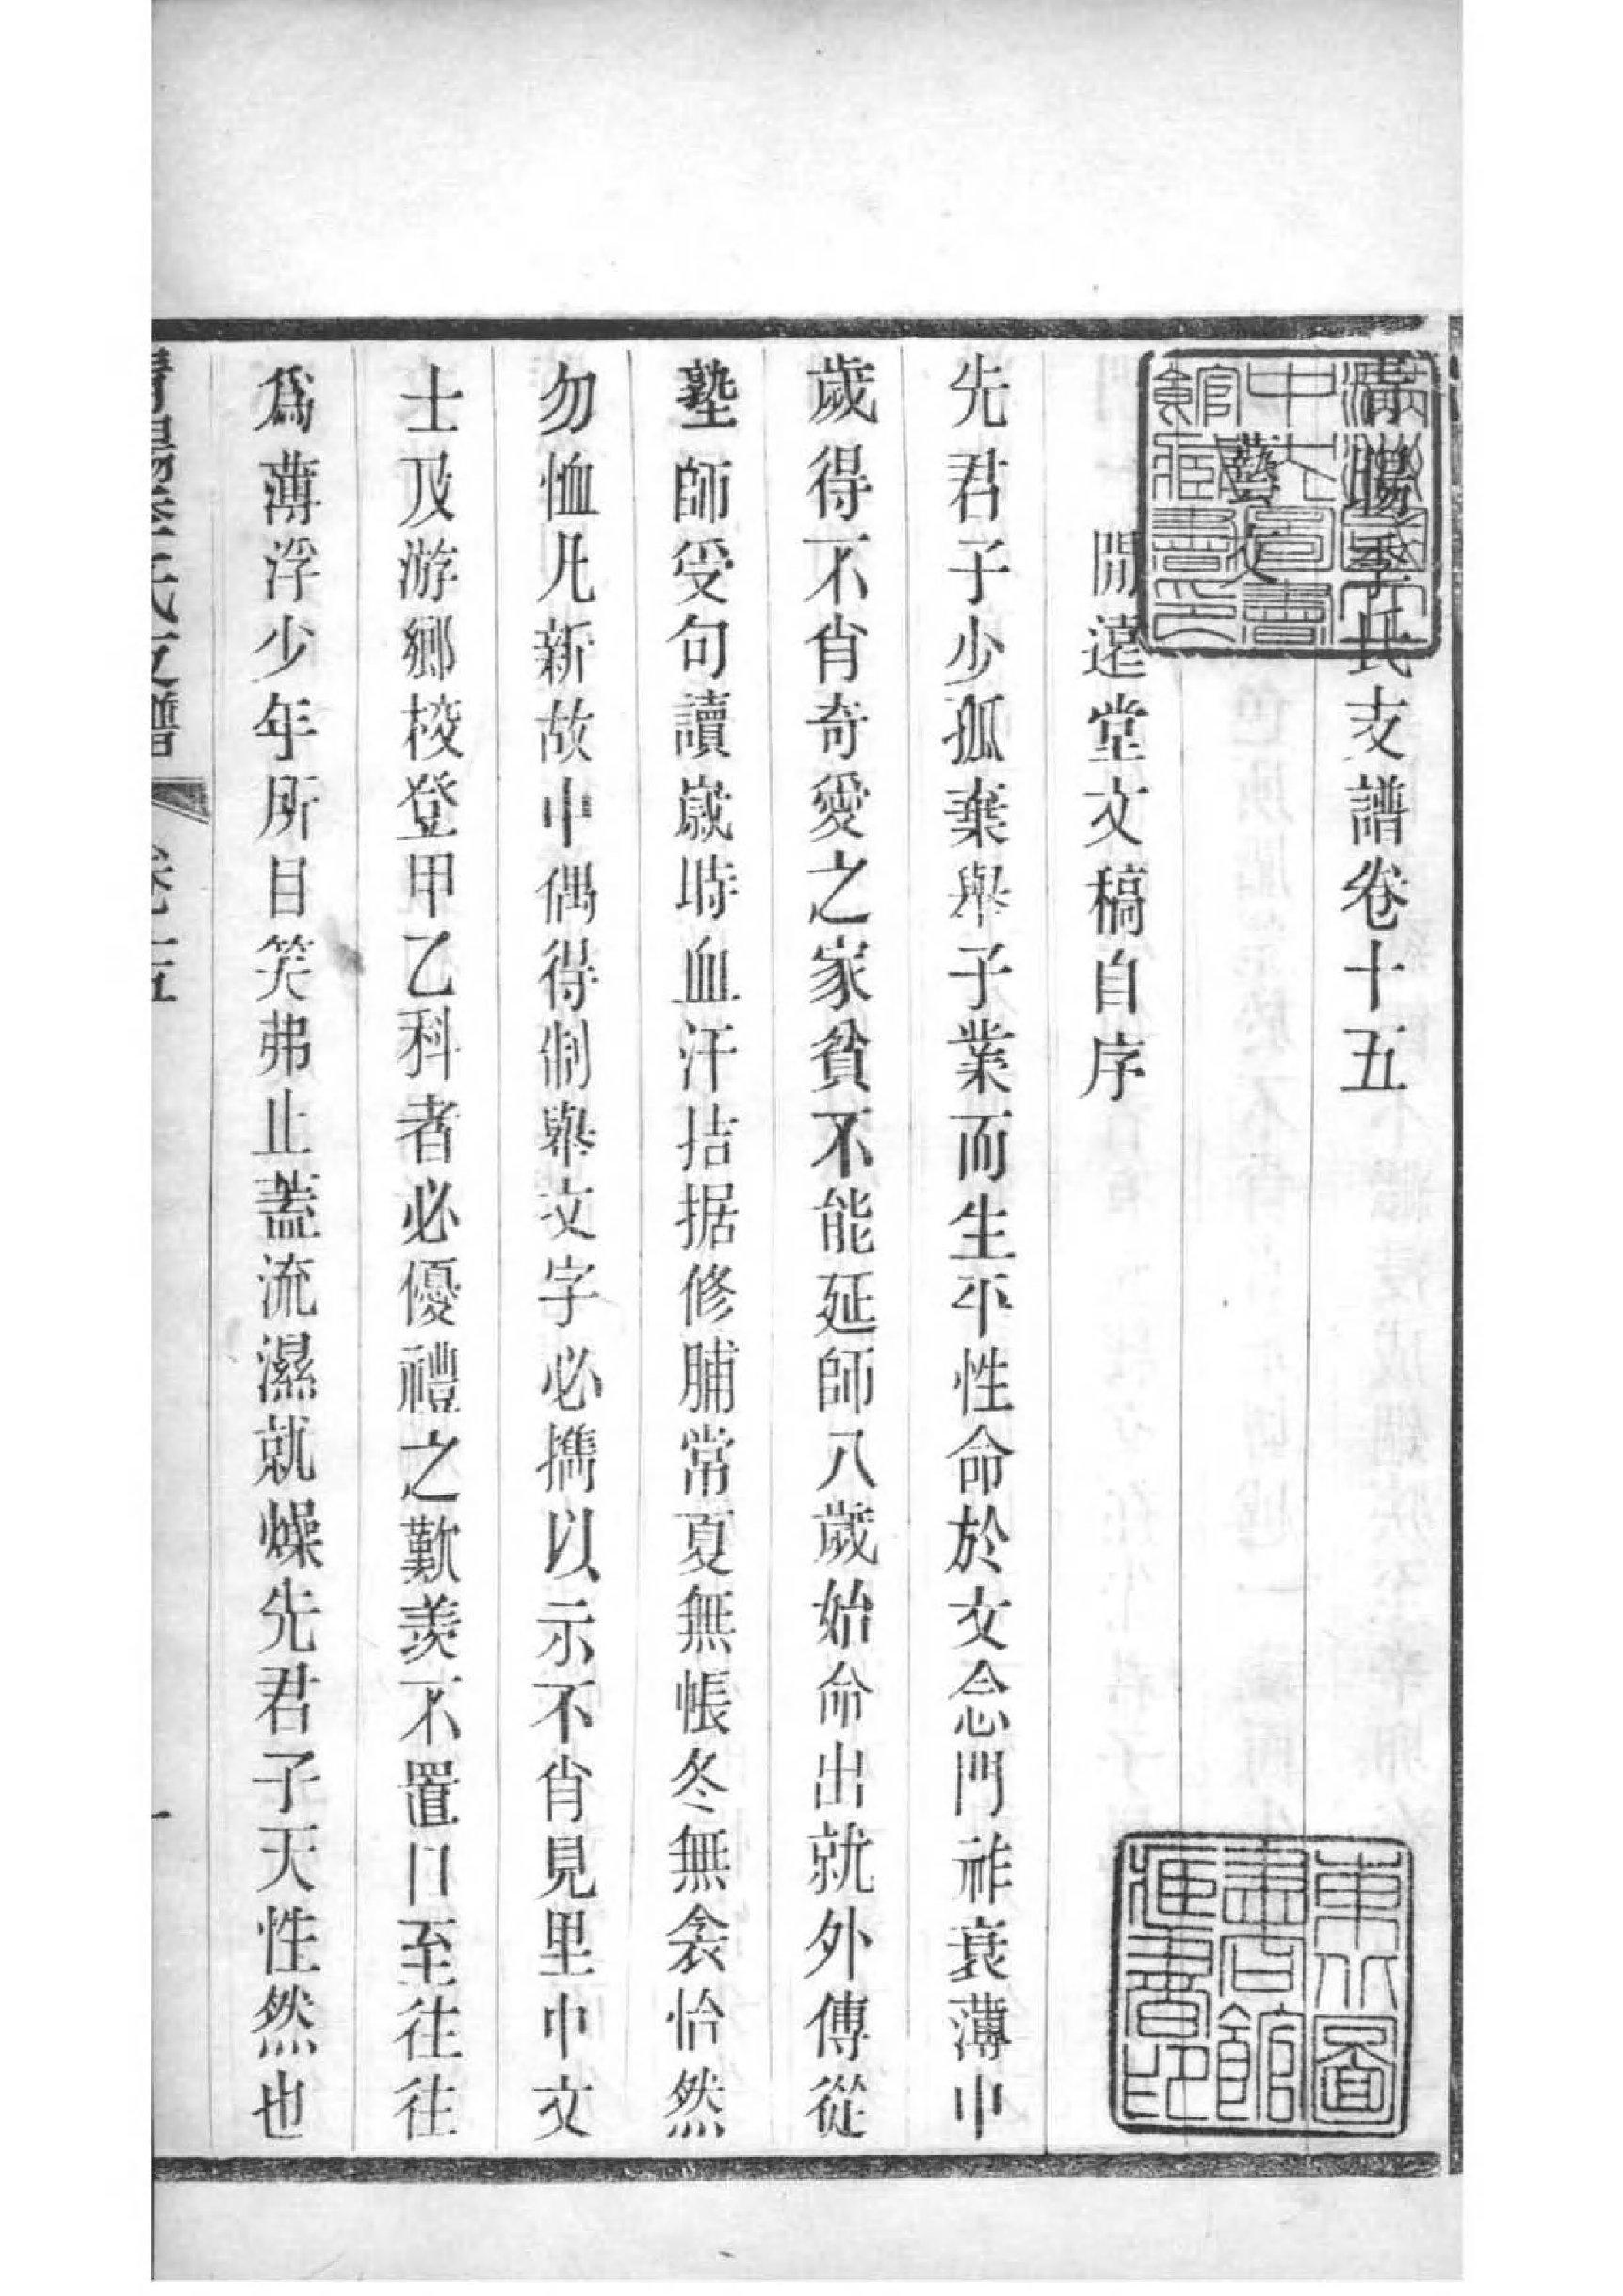 清暘李氏支譜卷十五
藝文
閒遠堂文稿自序
先君子少孤棄舉子業而生平性命於文念門祚衰薄中
歲得不肖奇愛之家貧不能延師八歲始命出就外傅從
塾師受句讀嵗時血汗拮据修脯常夏無帳冬無衾怡然
勿恤凡新故中偶得制舉文字必攜以示不肖見里中文
士及游鄉校登甲乙科者必優禮之歎羨不置口至往往
爲薄浮少年所目笑弗止蓋流濕就燥先君子天性然也
東北圖書館藏書印